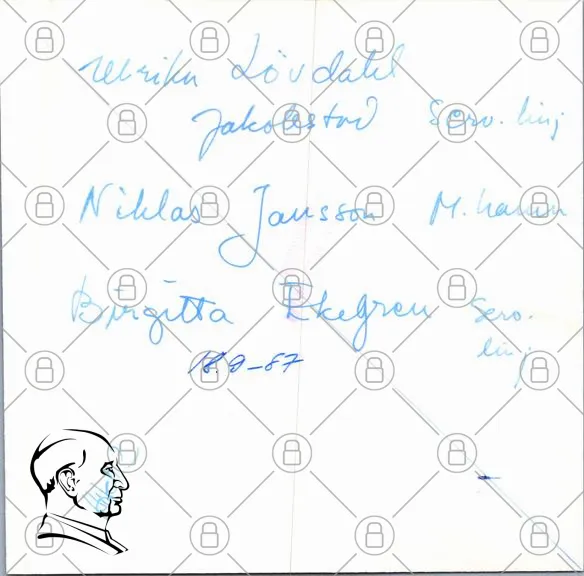 Ulrika Lövdahl
Jakobstad Serv. linj
Niklas Jansson M. hamn
Birgitta Ekegren Serv.
linj
18.9-87